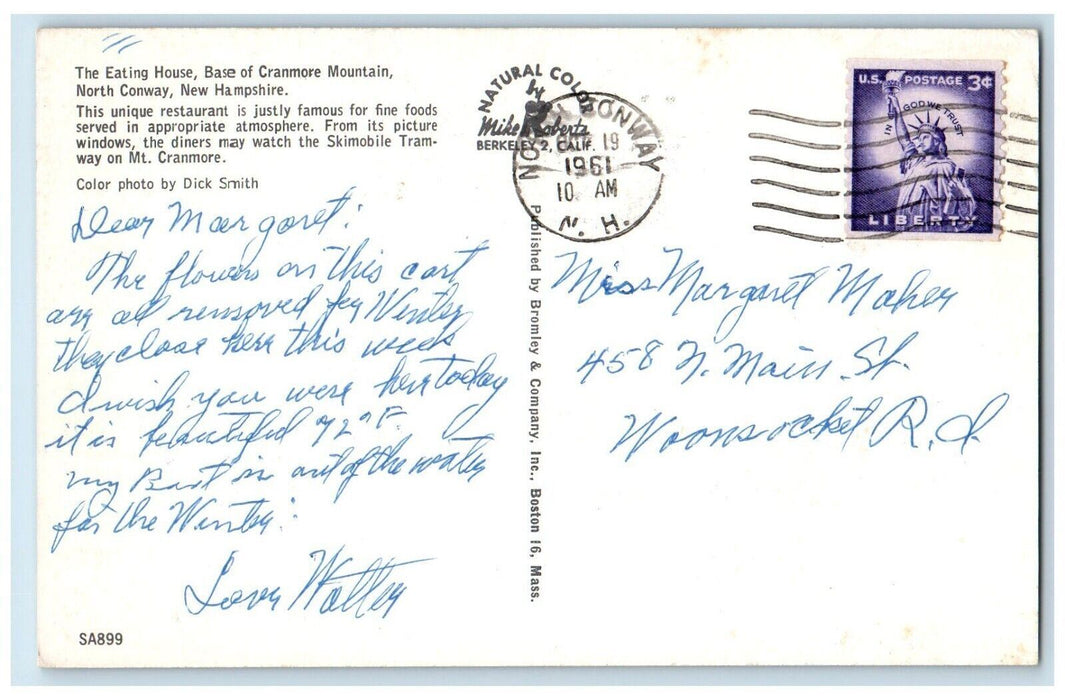 The Eating House, Base of Cranmore Mountain,
North Conway, New Hampshire.
This unique restaurant is justly famous for fine foods
served in appropriate atmosphere. From its picture
windows, the diners may watch the Skimobile Tram-
way on Mt. Cranmore.
Color photo by Dick Smith
Dear Margaret:
The flowers on this cart
are all removed for Winter
they close here this week
I wish you were here today
it is beautiful 72° F.
my Boat is out of the water
for the Winter.
Love Walter
SA899
Published by Bromley & Company, Inc., Boston 16, Mass.
NATURAL COLOR
by
Mike Roberts
BERKELEY 2, CALIF.
NORTH CONWAY
19
1961
10 AM
N. H.
U.S. POSTAGE 3¢
IN GOD WE TRUST
LIBERTY
Miss Margaret Maher
458 N. Main St.
Woonsocket R.I